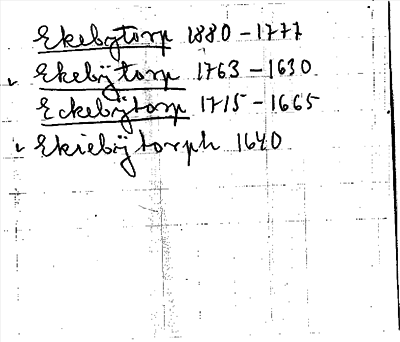 Ekebytorp 1880-1777
v Ekebÿtorp 1763-1630
Eckebÿtorp 1715-1665
v Ekiebÿtorph 1640